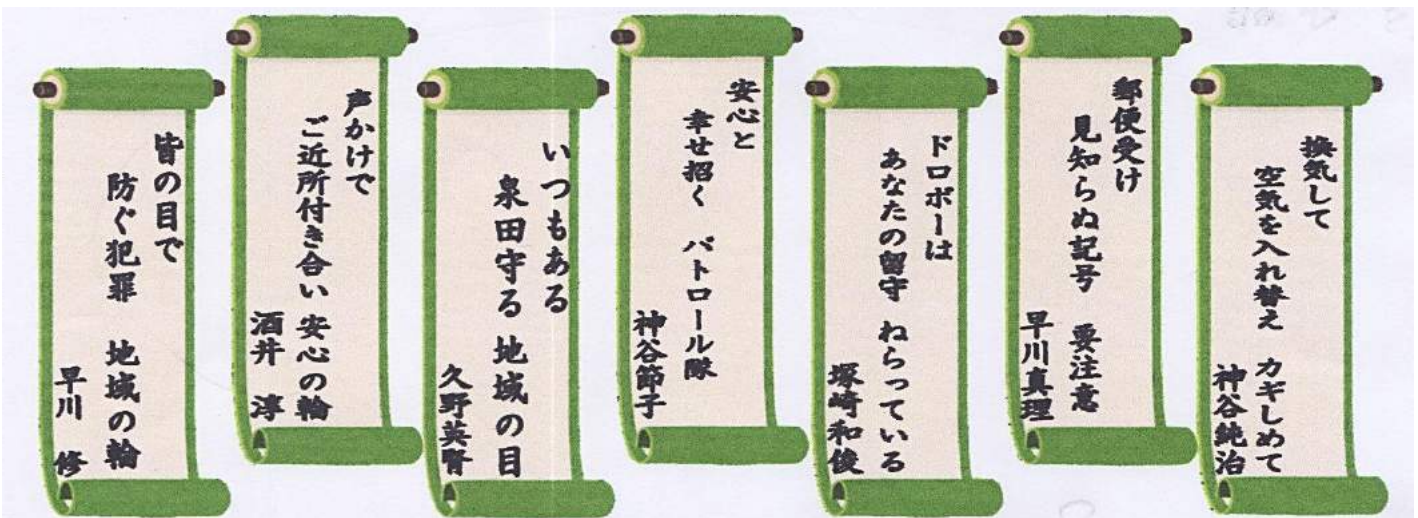 換気して
空気を入れ替え カギしめて
神谷純治
郵便受け
見知らぬ記号 要注意
早川真理
ドロボーは
あなたの留守 ねらっている
塚崎和俊
安心と
幸せ招く パトロール隊
神谷節子
いつもある
泉田守る 地域の目
久野英腎
声かけで
ご近所付き合い 安心の輪
酒井 淳
皆の目で
防ぐ犯罪 地域の輪
早川 修